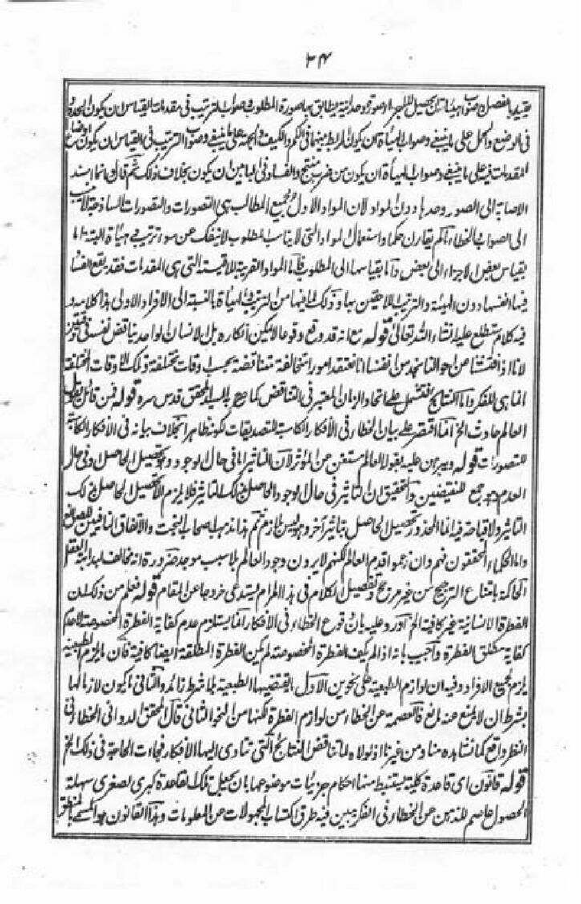 ٣٤
في الوضع والحمل على ما ينبغي وصواب الهيأة ان يكون الربط بينهما في الكم والكيف والجهة على ما ينبغي وصواب الترتيب في القياس ان يكون
المقدمات فيه على ما ينبغي وصواب الهيأة ان يكون من ضرب منتج والفساد في البابين ان يكون بخلاف ذلك ثم قال انما اسند
الاصابة الى الصور وحدها دون المواد لان المواد الاول لجميع المطالب هي التصورات والتصورات الساذجة لا ينسب
الى الصواب والخطاء ما لم يقارن حكما واستعمال المواد التي لا يناسب المطلوب لا ينفك عن سوء ترتيب وهيأة البتة اما
بقياس بعض الاجزاء الى بعض واما بقياسها الى المطلوب واما المواد القريبة للاقيسة التي هي المقدمات فقد يقع الفساد
فيها انفسها دون الهيئة والترتيب اللاحقين بها وذلك لما فيها من الترتيب والهيأة بالنسبة الى الافراد الاولى هذا كلامه و
فيه كلام ستطلع عليه انشاء الله تعالى قوله مع انه قد وقع وقوعا لا يمكن انكاره بل الانسان الواحد يناقض نفسه في وقتين
لانا اذا فتشنا عن احوالنا نجد من انفسنا انا نعتقد امورا متخالفة متناقضة بحسب اوقات مختلفة وتلك الاوقات المختلفة
انما هي للفكر واما النتائج فتشتمل على اتحاد الزمان المعتبر في التناقض كما صرح به السيد المحقق قدس سره قوله فمن قائل بقول
العالم حادث الخ انما اقتصر على بيان الخطاء في الأفكار الكاسبة للتصديقات لكونه ظاهرا بخلاف بيانه في الافكار الكاسبة
للتصورات قوله ويبرهن عليه بقوله العالم مستغن عن المؤثر لان التاثير اما في حال الوجود وهو تحصيل الحاصل وفي حال
العدم وهو جمع للنقيضين والتحقيق ان التاثير في حال الوجود الحاصل بذلك التاثير فلا يلزم الا تحصيل الحاصل بذلك
التاثير ولا قباحة فيه انما المحذور تحصيل الحاصل بتاثير آخر وهو ليس بلازم ثم هذا مذهب اصحاب البخت والاتفاق النافين للصانع
واما الحكماء المحققون فهم وان زعموا قدم العالم لكنهم لا يرون وجود العالم بلا سبب موجد ضرورة انه مخالف لبداهة العقل
الحاكمة بامتناع الترجيح من غير مرجح وتفصيل الكلام في هذا المرام يستدعي خروجا عن المقام قوله فعلم من ذلك ان
الفطرة الانسانية غير كافية الخ اورد عليه بان وقوع الخطاء في الافكار انما يستلزم عدم كفاية الفطرة المخصوصة لا عدم
كفاية مطلق الفطرة واجيب بانه اذا لم يكف الفطرة المخصوصة لم يكن الفطرة المطلقة ايضا كافية فان ما يلزم الطبيعة
يلزم لجميع الافراد وفيه ان لوازم الطبيعة على نحوين الاول ما يقتضيها الطبيعة بلا شرط زائد والثاني ما يكون لازما لها
بشرط ان لا يمنع عنه مانع فالعصمة عن الخطاء من لوازم الفطرة لكنها من النحو الثاني قال المحقق الدواني الخطاء في
النظر واقع كما نشاهده منا ومن غيرنا اذ لولاه لما تناقض النتائج التي تتادى اليها الافكار فجاءت الحاجة في ذلك الخ
قوله قانون اى قاعدة كلية يستنبط منها احكام جزئيات موضوعها بان يجعل تلك القاعدة كبرى لصغرى سهلة
الحصول عاصم للذهن عن الخطاء في الفكر يبين فيه طرق اكتساب المجهولات عن المعلومات وهذا القانون هو المسمى بالمنطق